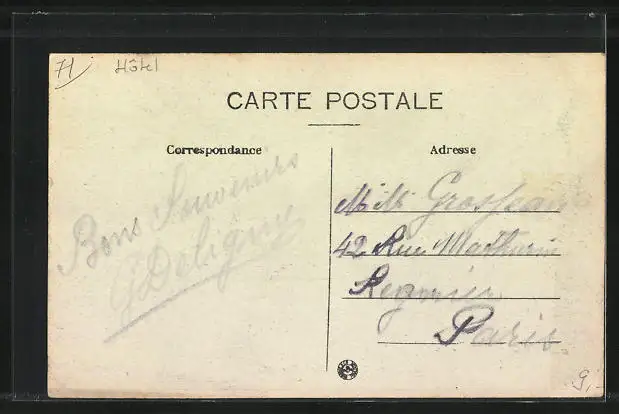 71 Hôtel
CARTE POSTALE
Correspondance
Adresse
Bons Souvenirs
G Deligny
M. M. Grosjean
42 Rue Mathurin
Regnier
Paris.
9,-